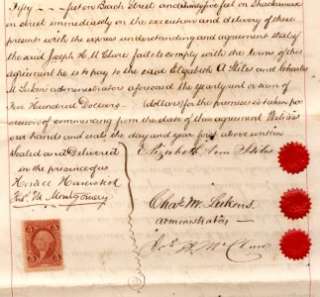 Fifty feet on Beach Street and thirty five feet on Shackamax
on street immediately on the execution and delivery of these
presents with the express understanding and agreement that if
the said Joseph H. McClure fails to comply with the terms of this
agreement he is to pay to the said Elizabeth A Stiles and Charles
M Lukens administrators aforesaid the yearly rent or sum of
Five Hundred Dollars dollars for the premises
commencing from the date of this agreement Witness
our hands and seals the day and year first above written
Sealed and Delivered
in the presence of us
Horace
Montgomery
Elizabeth Ann Stiles
Chas. M. Lukens
administrator
Jos H McClure